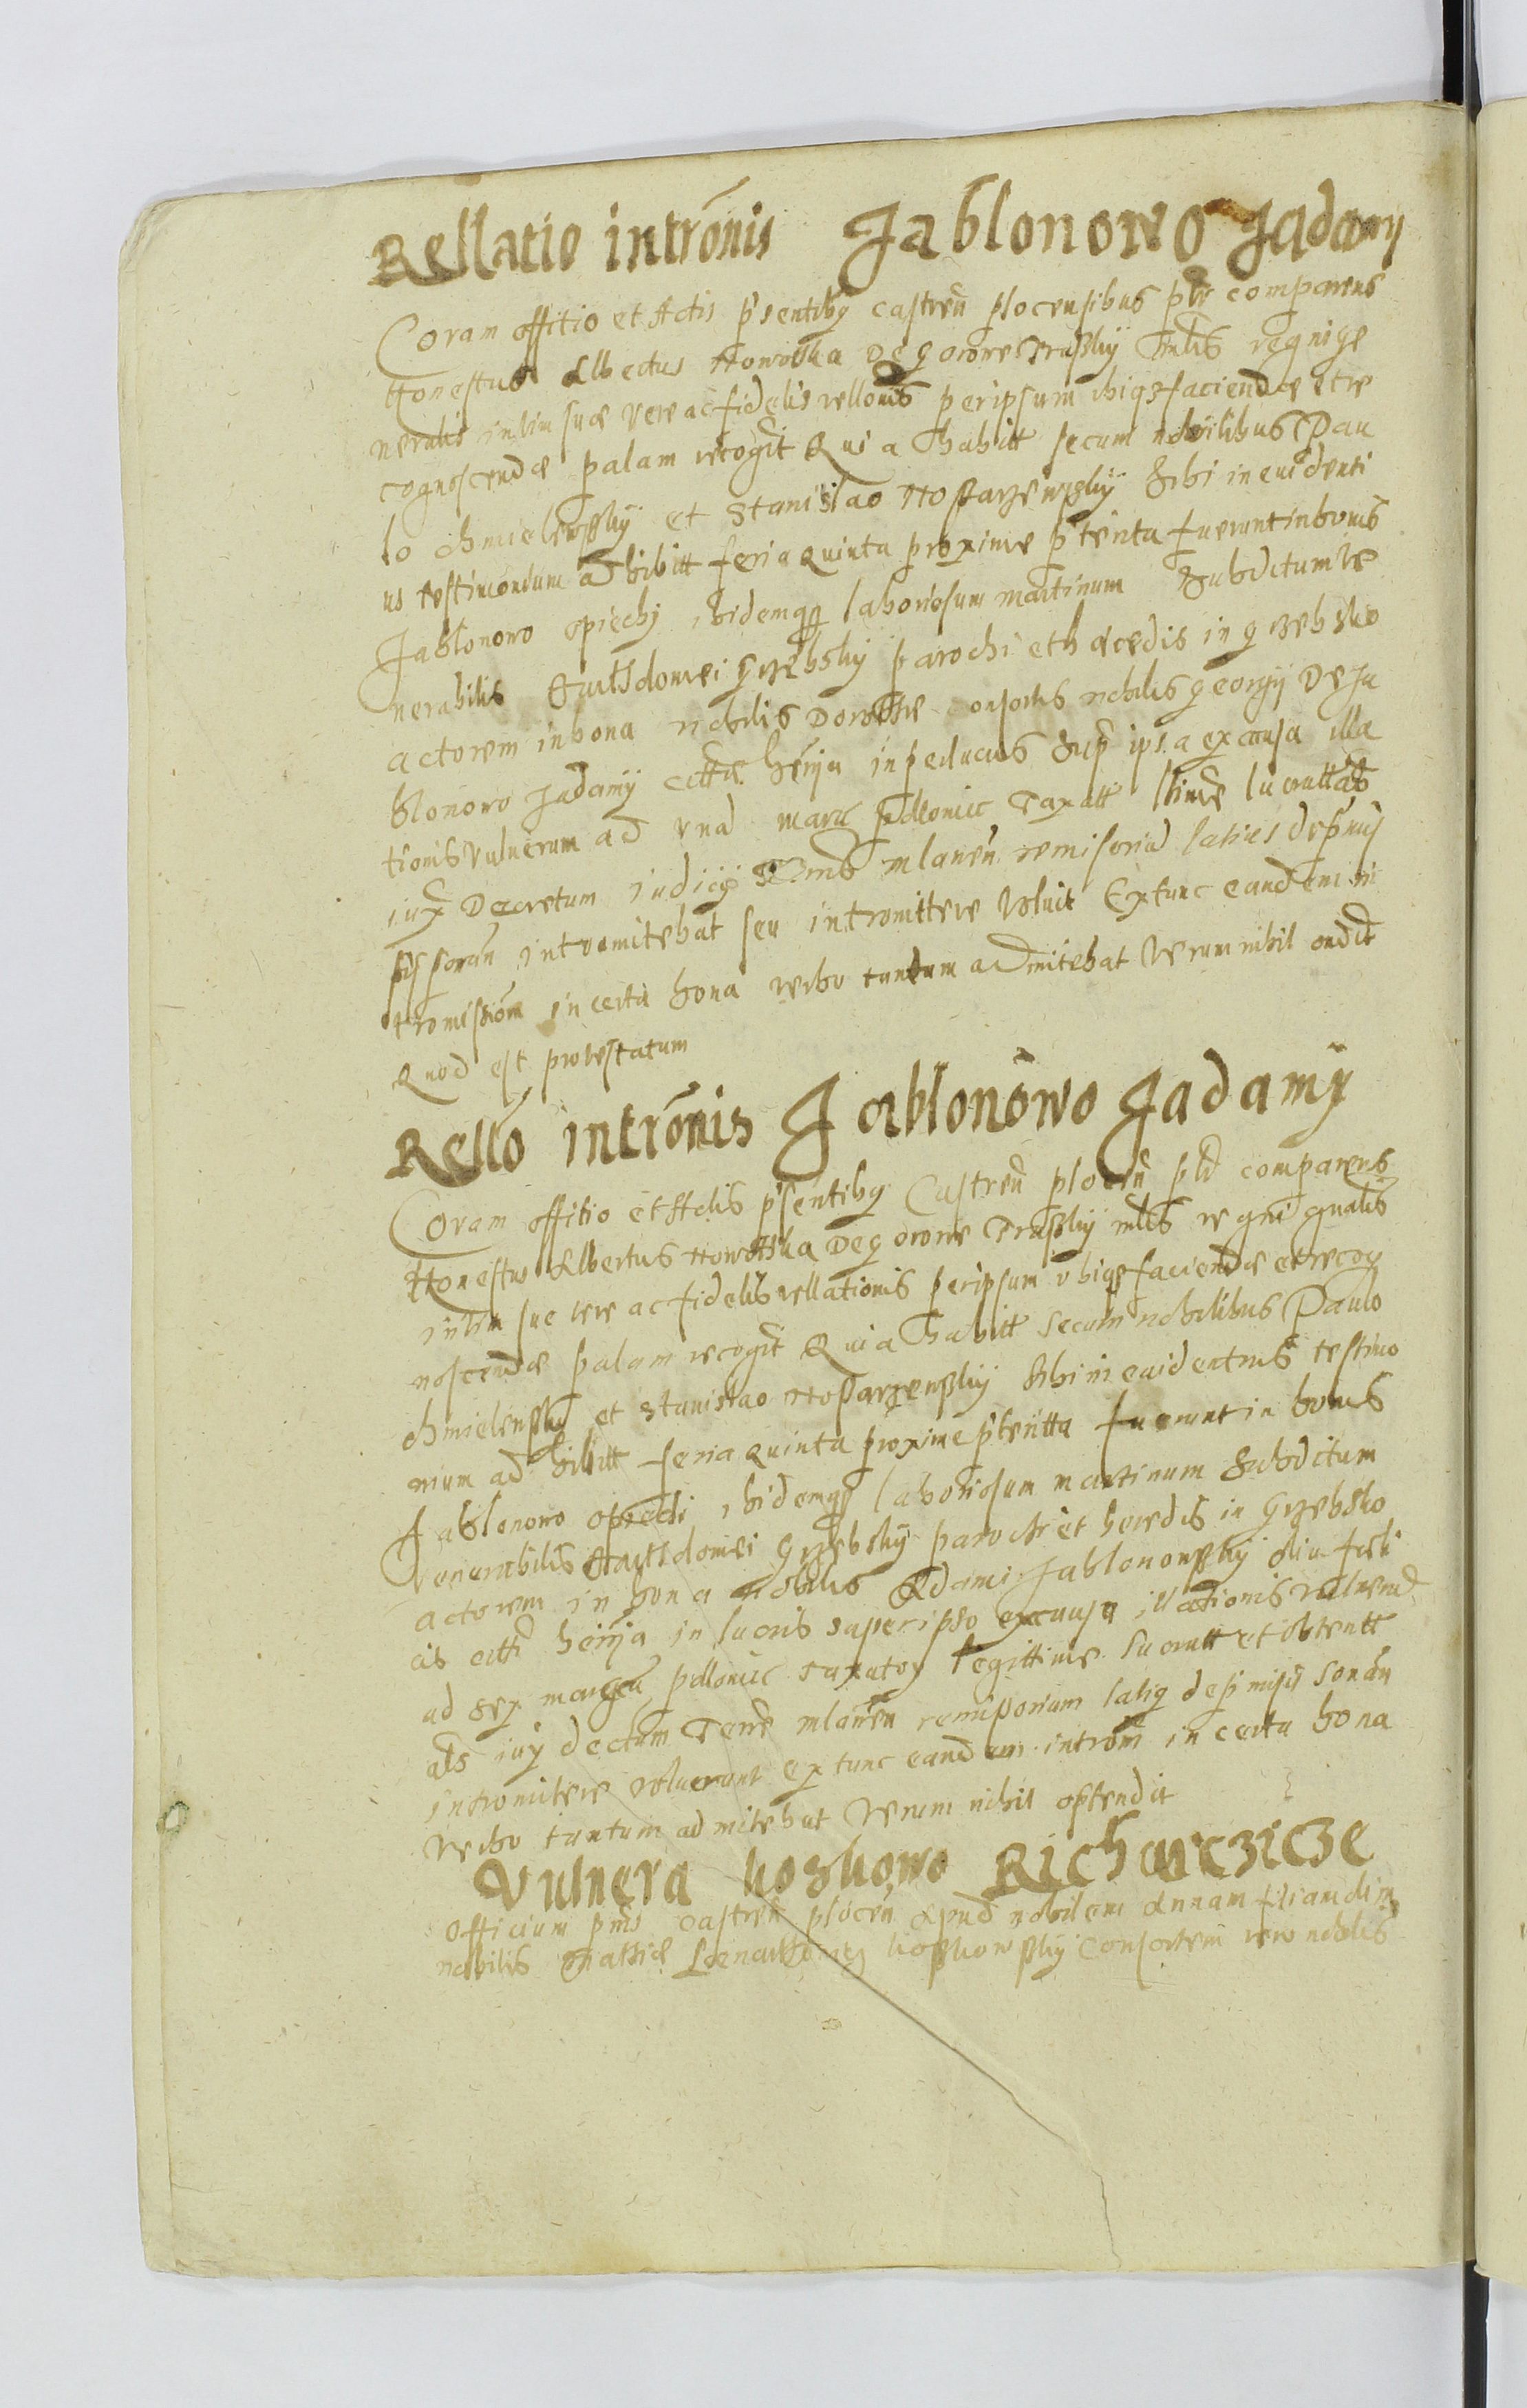 Rellatio introm̃nis Jablonowo Jadamy
Coram offitio et Actis p̃sentiby castreñ plocensibus comparens
Honestus Albertus Nowotka De gorone Pruszkÿ regni ge
neralis intim suæ vere ac fidelis rellonis per ipsum ubiqz faciendæ et re
cognoscendæ palam recogñt Quia habitt secum nobilibus Pau
lo Chmielewskÿ et Stanislao Noszarzewskÿ Sibi in euidenti
us testimonium adhibitt feria quinta proxime p̃terita fuerunt in bonis
Jablonowo opiechy ibidemqz laboriosum martinum Subditum ve
nerabilis Bartsdomei Grzebskÿ parochi et hæredis in grzebsko
actorem in bona nobilis Dorothæ consortis nobilis georgÿ De Ja
blonowo Jadamÿ in pecuniis Sup ipsa ex causa illa
tionis vulnerum ad vna marc̃ polonic Taxatt lucratt als
iux Decretum iudicÿ mlaueñ remisoriã latius
sonañ intromitebat seu intromittere voluit Extunc eandem in
tromissiom in certa bona verbo tantum admitebat Verum nihil ondit
Quod est protestatum
Rello introm̃nis Jablonowo Jadamÿ
Coram offitio et Actis p̃sentiby Castreñ ploceñ comparens
Honestus Albertus Nowotka De gorone Pruszkÿ regni gnalis
intim sue vere ac fidelis rellationis per ipsum ubiqz faciendæ et recog
noscendæ palam recogñt Quia habitt secum nobilibus Paulo
chmielenskÿ et Stanislao Noszarzenskÿ Sibi in euidentius testimo
nium adhibitt feria quinta proxime p̃teritta fuerunt in bonis
Jablonowo opiechi ibidemqz laboriosum martinum Subditum
venerabilis Bartsdomei Grzebskÿ parochi et heredis in Grzebsko
actorem in bona nobilis Adami Jablononskÿ olim
in lucris super ipso ex causa illationis vulnerũ
ad sex marcã polonic taxatoy legittime lucratt et obtentt
als iux dectum Terre mlaueñ remissorium latiq sonañ
intromitere voluerunt extunc eandem introm̃ in certa bona
verbo tantum admitebat Verum nihil ostendit
Vulnera koskowo Richarczicze
Officium castreñ ploceñ apud nobilem Annam filiam olim
nobilis Mathiæ koszkowskÿ Consortem vero nobilis